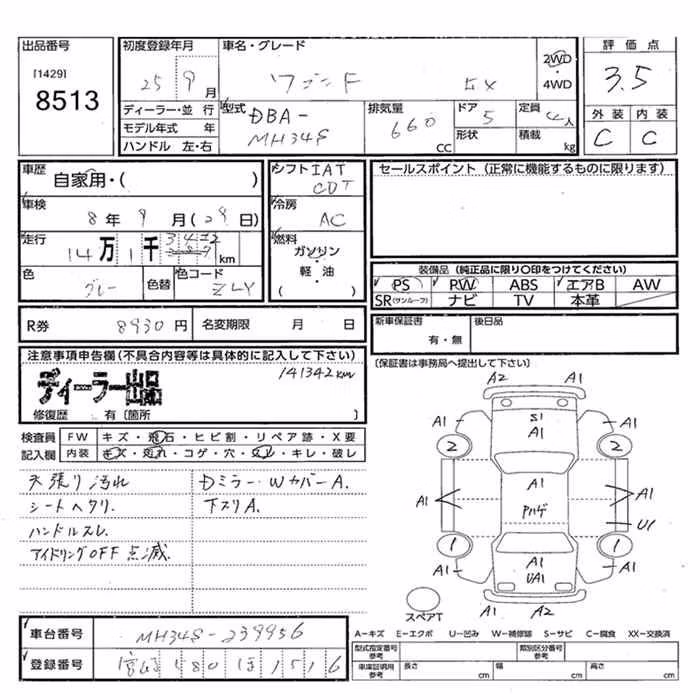 出品番号
[1429]
8513
初度登録年月
25 9 月
車名・グレード
ワゴンR FX
2WD
・
4WD
評価点
3.5
外装 内装
C C
ディーラー・並行
モデル年式 年
ハンドル 左・右
型式
DBA-
MH34S
排気量
660
CC
ドア
5
形状
定員
4人
積載
kg
車歴
自家用・( )
車検
8年9月(29日)
走行
14万1千342km
色
グレー
色替
色コード
ZLY
シフト IAT
CDT
冷房
AC
燃料
ガソリン
・
軽・油
( )
セールスポイント(正常に機能するものに限ります)
装備品(純正品に限り○印をつけてください)
PS PW ABS エアB AW
SR(サンルーフ) ナビ TV 本革
R券 8930円 名変期限 月 日
新車保証書
有・無
後日品
(保証書は事務局へ提出して下さい)
注意事項申告欄(不具合内容等は具体的に記入して下さい)
ディーラー出品
141342km
修復歴 有[箇所 ]
検査員
記入欄
FW キズ・飛石・ヒビ割・リペア跡・X要
内装 キズ・汚れ・コゲ・穴・欠し・キレ・破レ
天張り汚れ
シートヘタリ.
ハンドルスレ.
アイドリングOFF 点滅.
Dミラー・WカバーA.
下スリA.
A2 A1
A1 S1 A1
A1
2 2
A1
A1 A1
Pハゲ
U1
1 1
A1 A1 A1
UA1
A1 A2
スペアT
車台番号 MH34S-239956
登録番号 宮崎 580 ほ 1516
A-キズ E-エクボ U-凹み W-補修跡 S-サビ C-腐食 XX-交換済
型式指定番号
参考
類別区分番号
参考
車庫証明用
参考
長さ cm 幅 cm 高さ cm